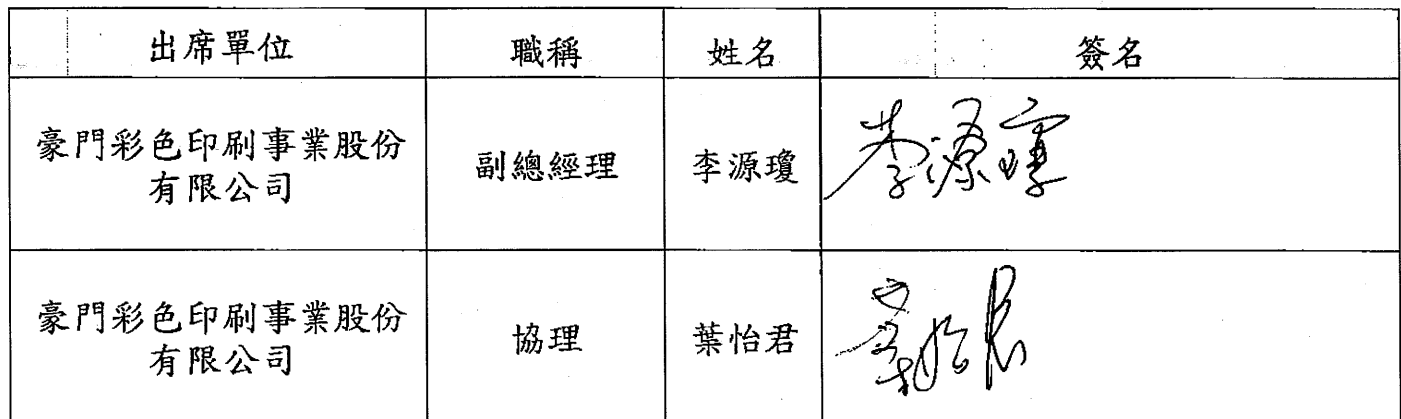 出席單位 職稱 姓名 簽名
豪門彩色印刷事業股份
有限公司 副總經理 李源瓊 李源瓊
豪門彩色印刷事業股份
有限公司 協理 葉怡君 葉怡君